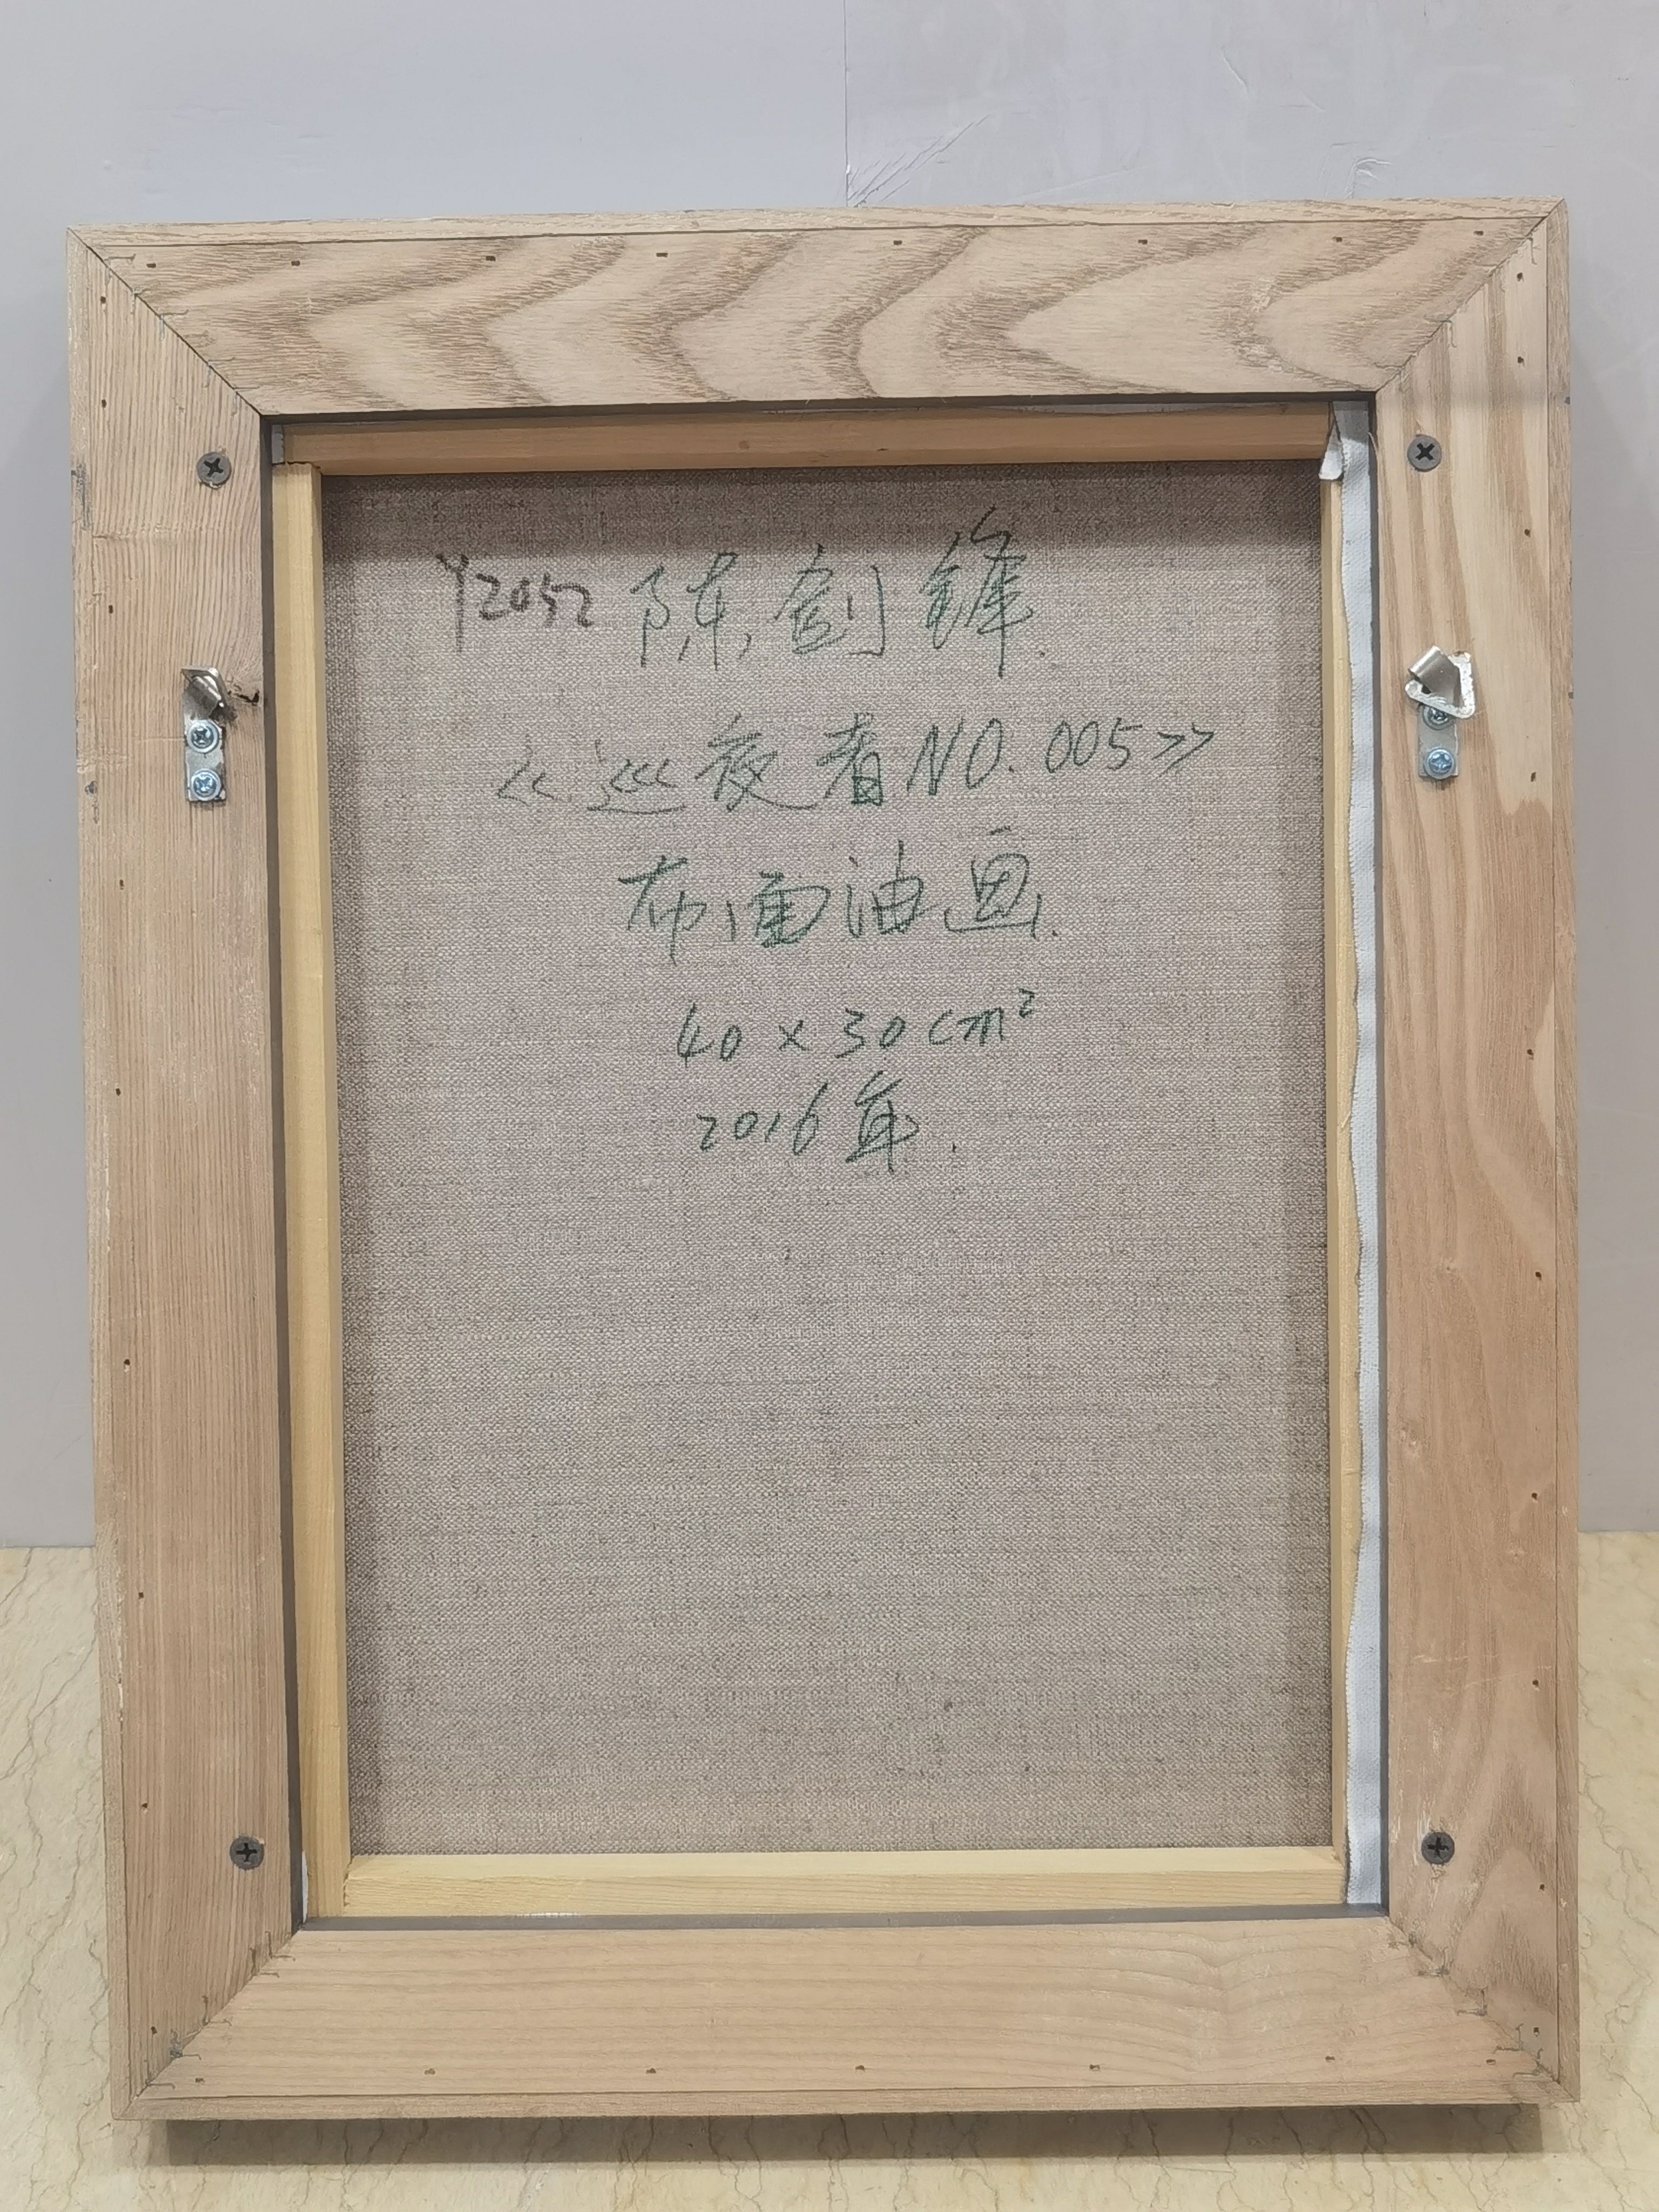 Y2052 陈剑锋.
《巡夜者NO.005》
布面油画.
40×30cm²
2016年.